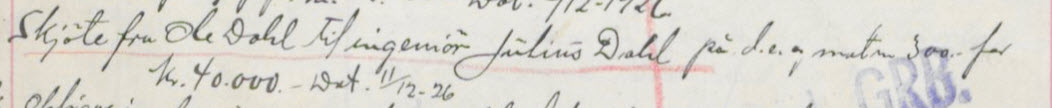 Dat. 9/12-1926
Skjöte fra Ole Dahl til ingeniör Julius Dahl på d.e. g matr 300.- for
Kr. 40.000.- Dat. 11/12-26
GRB.